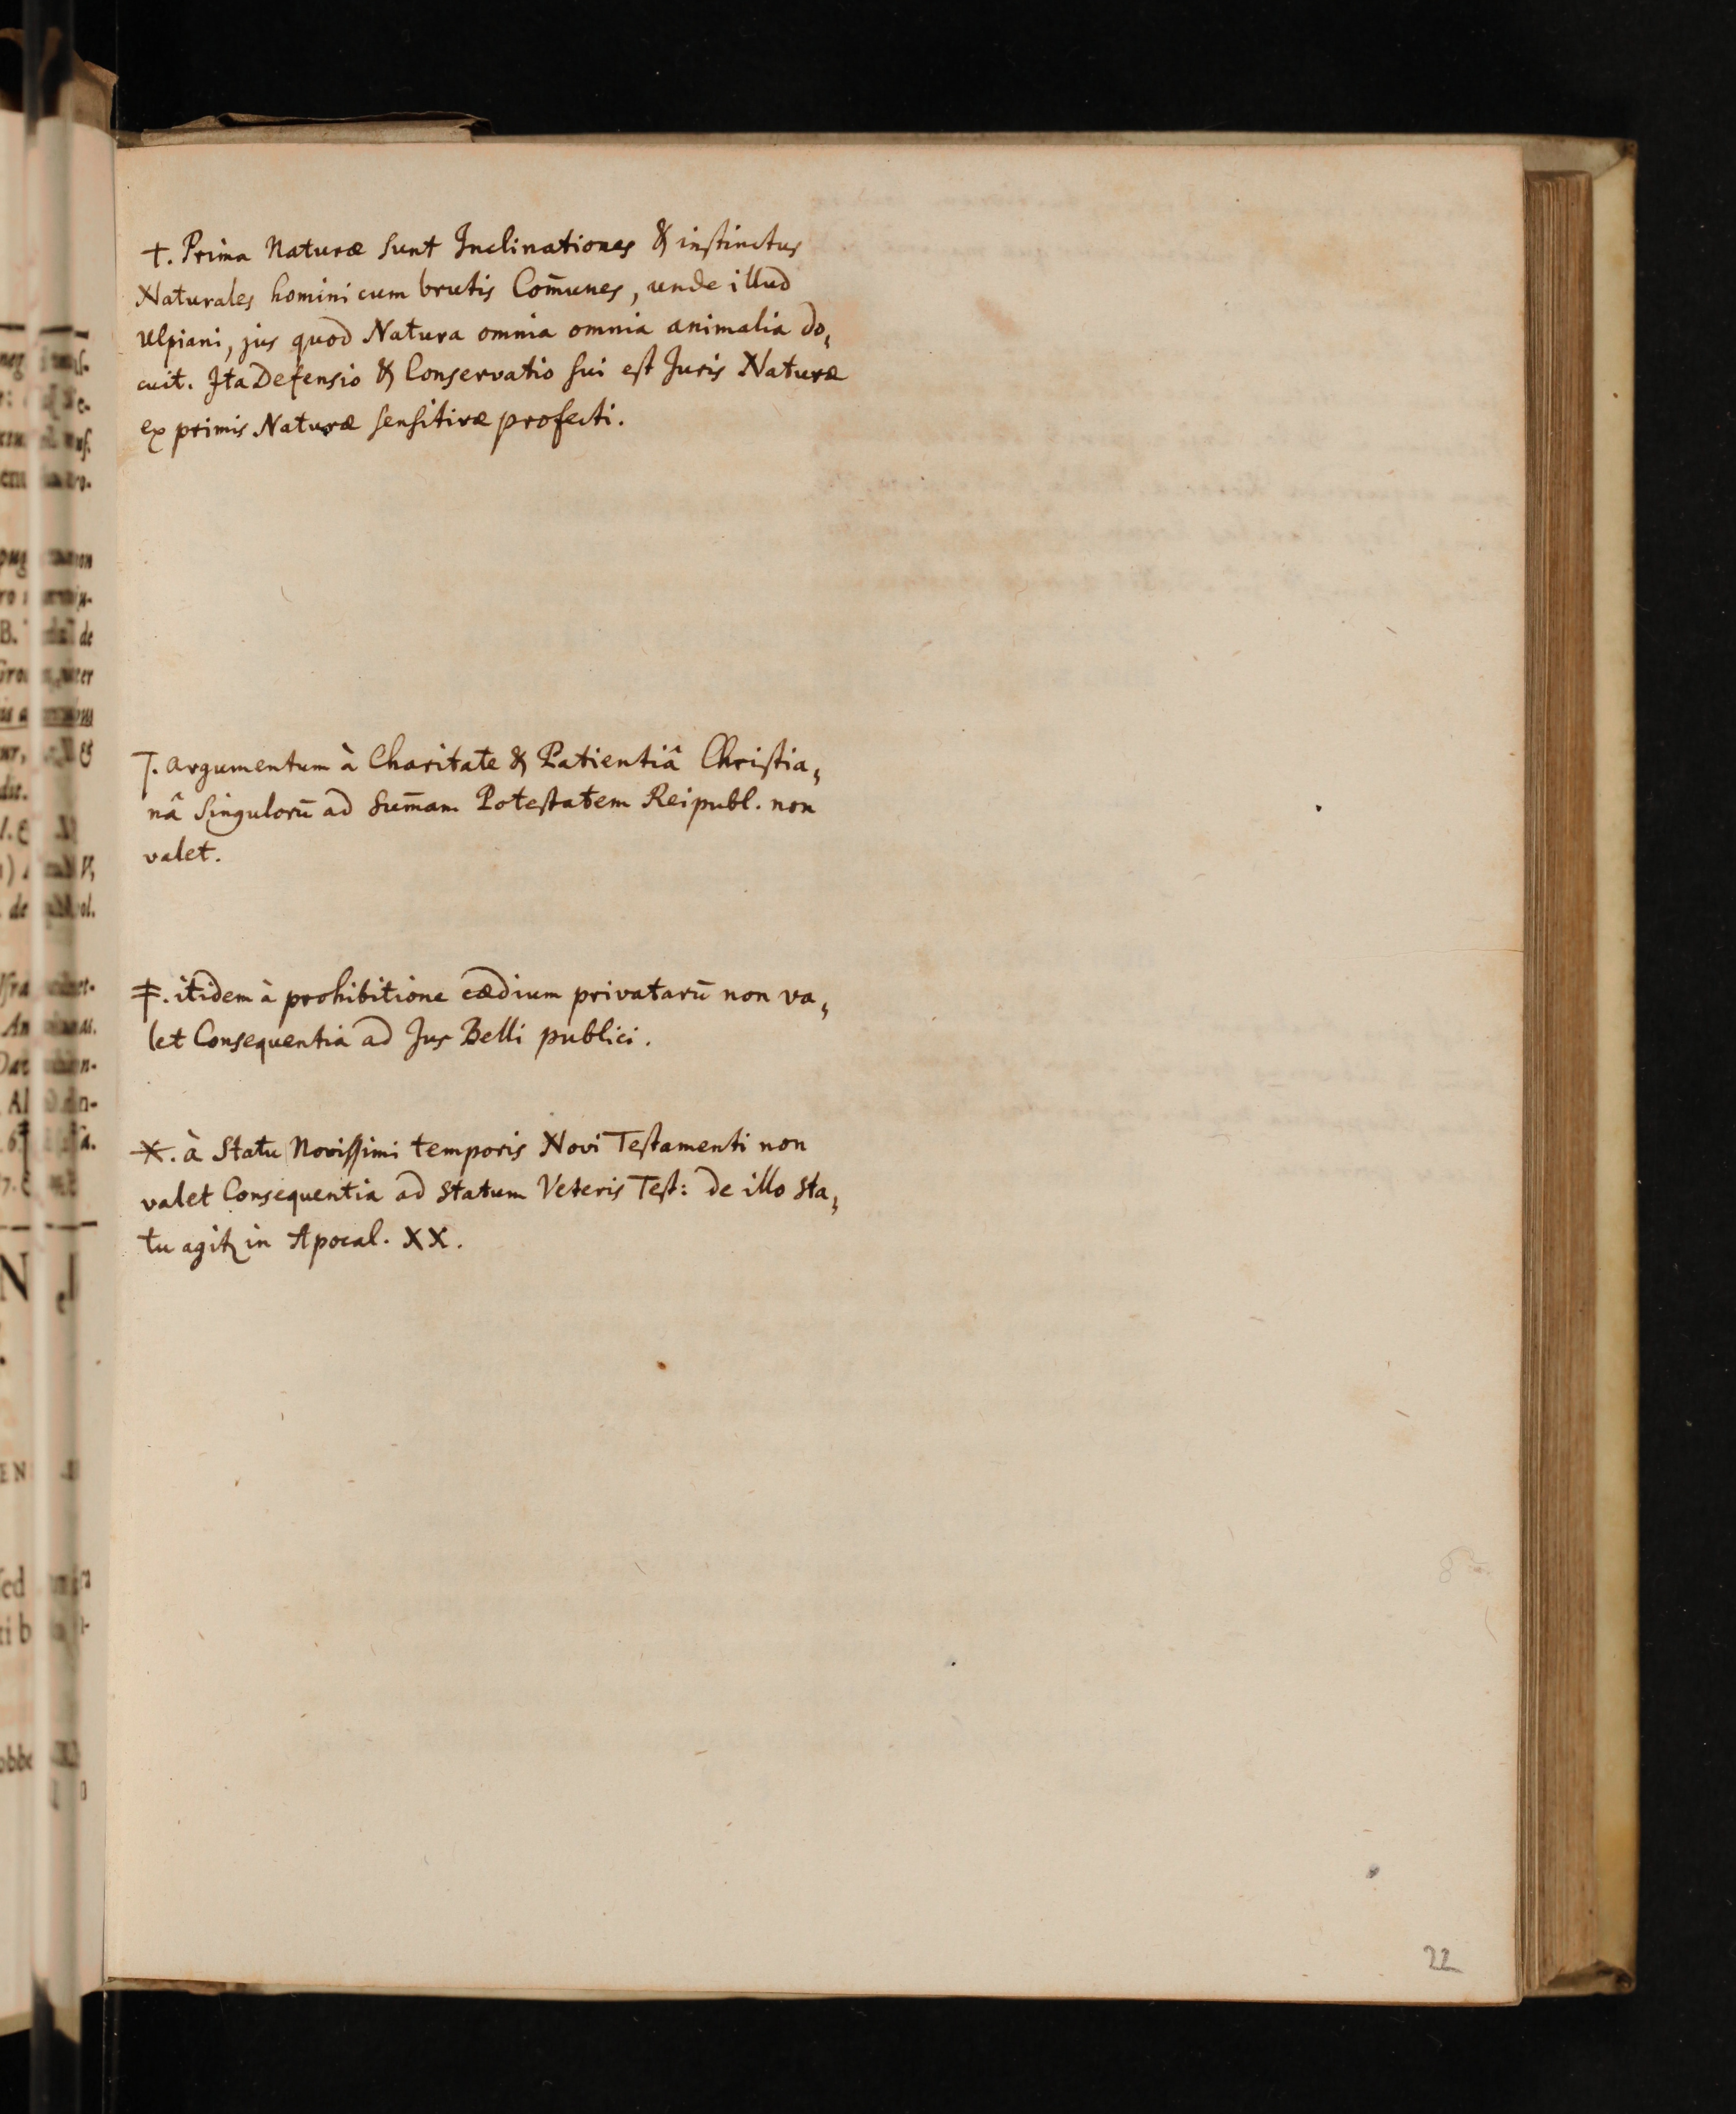 †. Prima Naturæ sunt Inclinationes & instinctus
Naturales homini cum brutis Com̄unes, unde illud
Ulpiani, jus quod Natura omnia omnia animalia do,
cuit. Ita Defensio & Conservatio sui est Juris Naturæ
ex primis Naturæ sensitivæ profecti.
Ƭ. Argumentum à Charitate & Patientiâ Christia,
nâ singulorū ad sum̄am Potestatem Reipubl. non
valet.
‡. itidem à prohibitione cædium privatarū non va,
let Consequentia ad Jus Belli publici.
*. à Statu Novissimi temporis Novi Testamenti non
valet Consequentia ad statum Veteris Test: de illo sta,
tu agitꝛ in Apocal. XX.
22